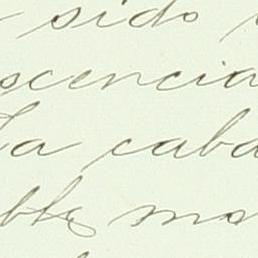 sido
scencia
La caba
ble ma